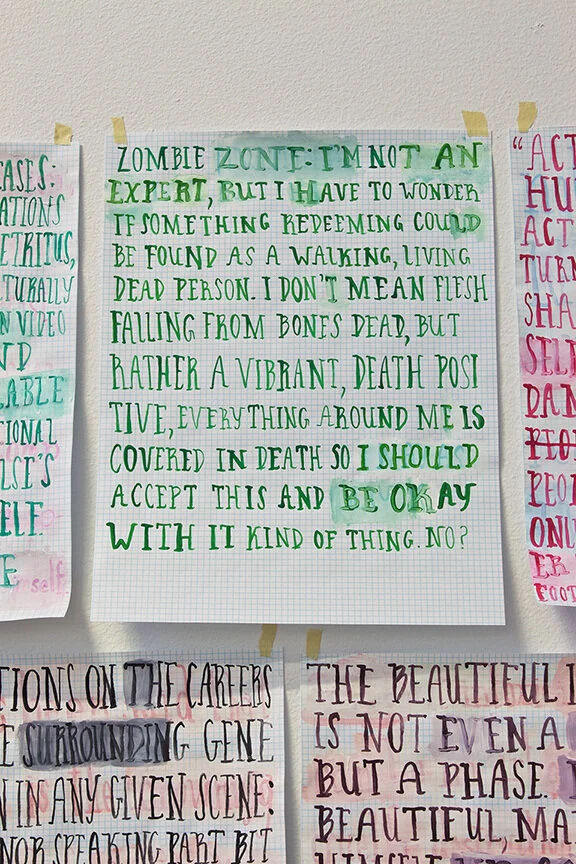 ZOMBIE ZONE: I'M NOT AN
EXPERT, BUT I HAVE TO WONDER
IF SOMETHING REDEEMING COULD
BE FOUND AS A WALKING, LIVING
DEAD PERSON. I DON'T MEAN FLESH
FALLING FROM BONES DEAD, BUT
RATHER A VIBRANT, DEATH POSI
TIVE, EVERYTHING AROUND ME IS
COVERED IN DEATH SO I SHOULD
ACCEPT THIS AND BE OKAY
WITH IT KIND OF THING. NO?
EASES:
ATIONS
ETRITUS,
TURALLY
N VIDEO
ND
LABLE
IONAL
LSE'S
ELF
self
"ACT
HU
ACT
TURN
SHA
SELF
DAN
PEOP
ONL
ER
FOOT
TIONS ON THE CAREERS
E SURROUNDING GENE
N IN ANY GIVEN SCENE:
NOR SPEAKING PART BIT
THE BEAUTIFUL
IS NOT EVEN A
BUT A PHASE.
BEAUTIFUL, MA
HIMSELF